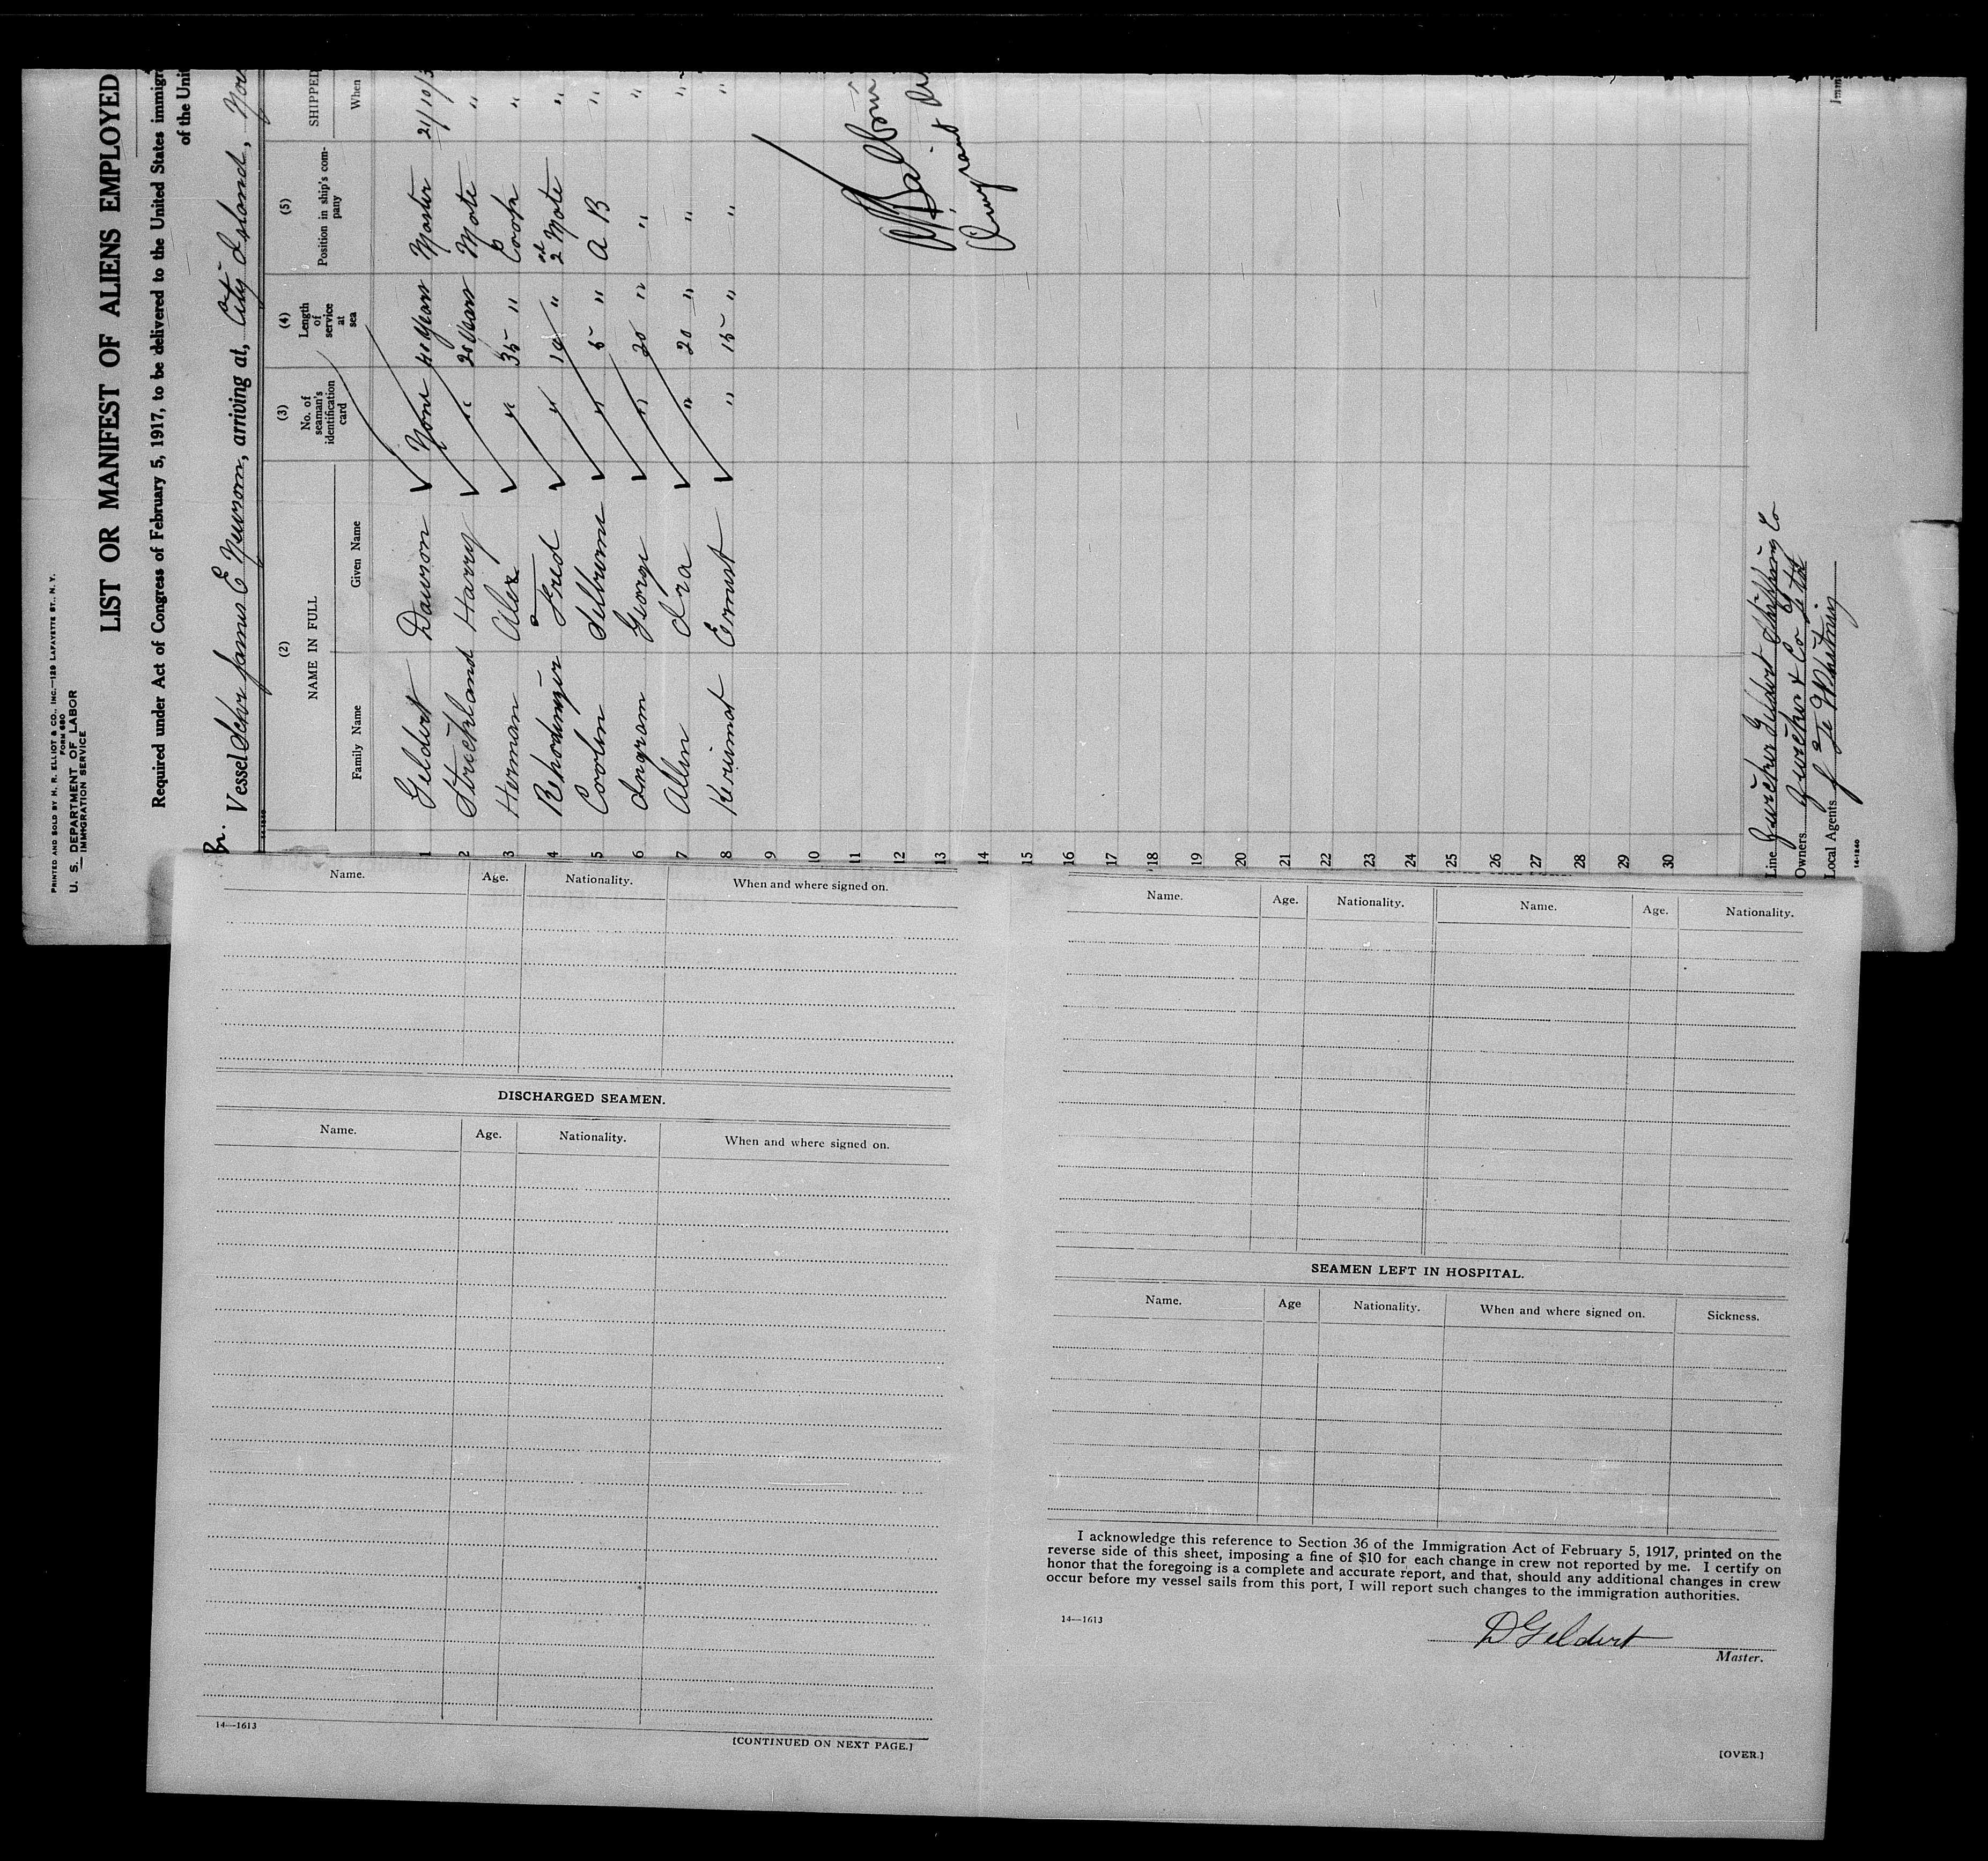 PRINTED AND SOLD BY H. R. ELLIOT & CO., INC.—129 LAFAYETTE ST., N. Y.
FORM 680
U. S. DEPARTMENT OF LABOR
IMMIGRATION SERVICE
LIST OR MANIFEST OF ALIENS EMPLOYED
Required under Act of Congress of February 5, 1917, to be delivered to the United States immigr
of the Unit
Br. Vessel Schr James E Newsom, arriving at, City Island,
(2) (3) (4) (5)
NAME IN FULL No. of seaman's identification card Length of service at sea Position in ship's company SHIPPED
Family Name Given Name When
1 Geldert Dawson None 40 years Master 21/10/3
2 Strickland Harry " 20 years Mate "
3 Herman Alex " 35 " Cook "
4 Fred " 10 " 2nd Mate "
5 Selburne " 5 " A B "
6 Ingram George " 20 " " "
7 Allen Ira " 20 " " "
8 Ernest " 15 " " "
9
10
11
12
13
14
15
16
17
18
19
20
21
22
23
24
25
26
27
28
29
30
Line Zwicker Geldert Shipping Co
Owners Zwicker & Co Ltd
Local Agents
14-1240
Name. Age. Nationality. When and where signed on.
DISCHARGED SEAMEN.
Name. Age. Nationality. When and where signed on.
14—1613
[CONTINUED ON NEXT PAGE.]
Name. Age. Nationality. Name. Age. Nationality.
SEAMEN LEFT IN HOSPITAL.
Name. Age Nationality. When and where signed on. Sickness.
I acknowledge this reference to Section 36 of the Immigration Act of February 5, 1917, printed on the
reverse side of this sheet, imposing a fine of $10 for each change in crew not reported by me. I certify on
honor that the foregoing is a complete and accurate report, and that, should any additional changes in crew
occur before my vessel sails from this port, I will report such changes to the immigration authorities.
14—1613
D Geldert
Master.
[OVER.]